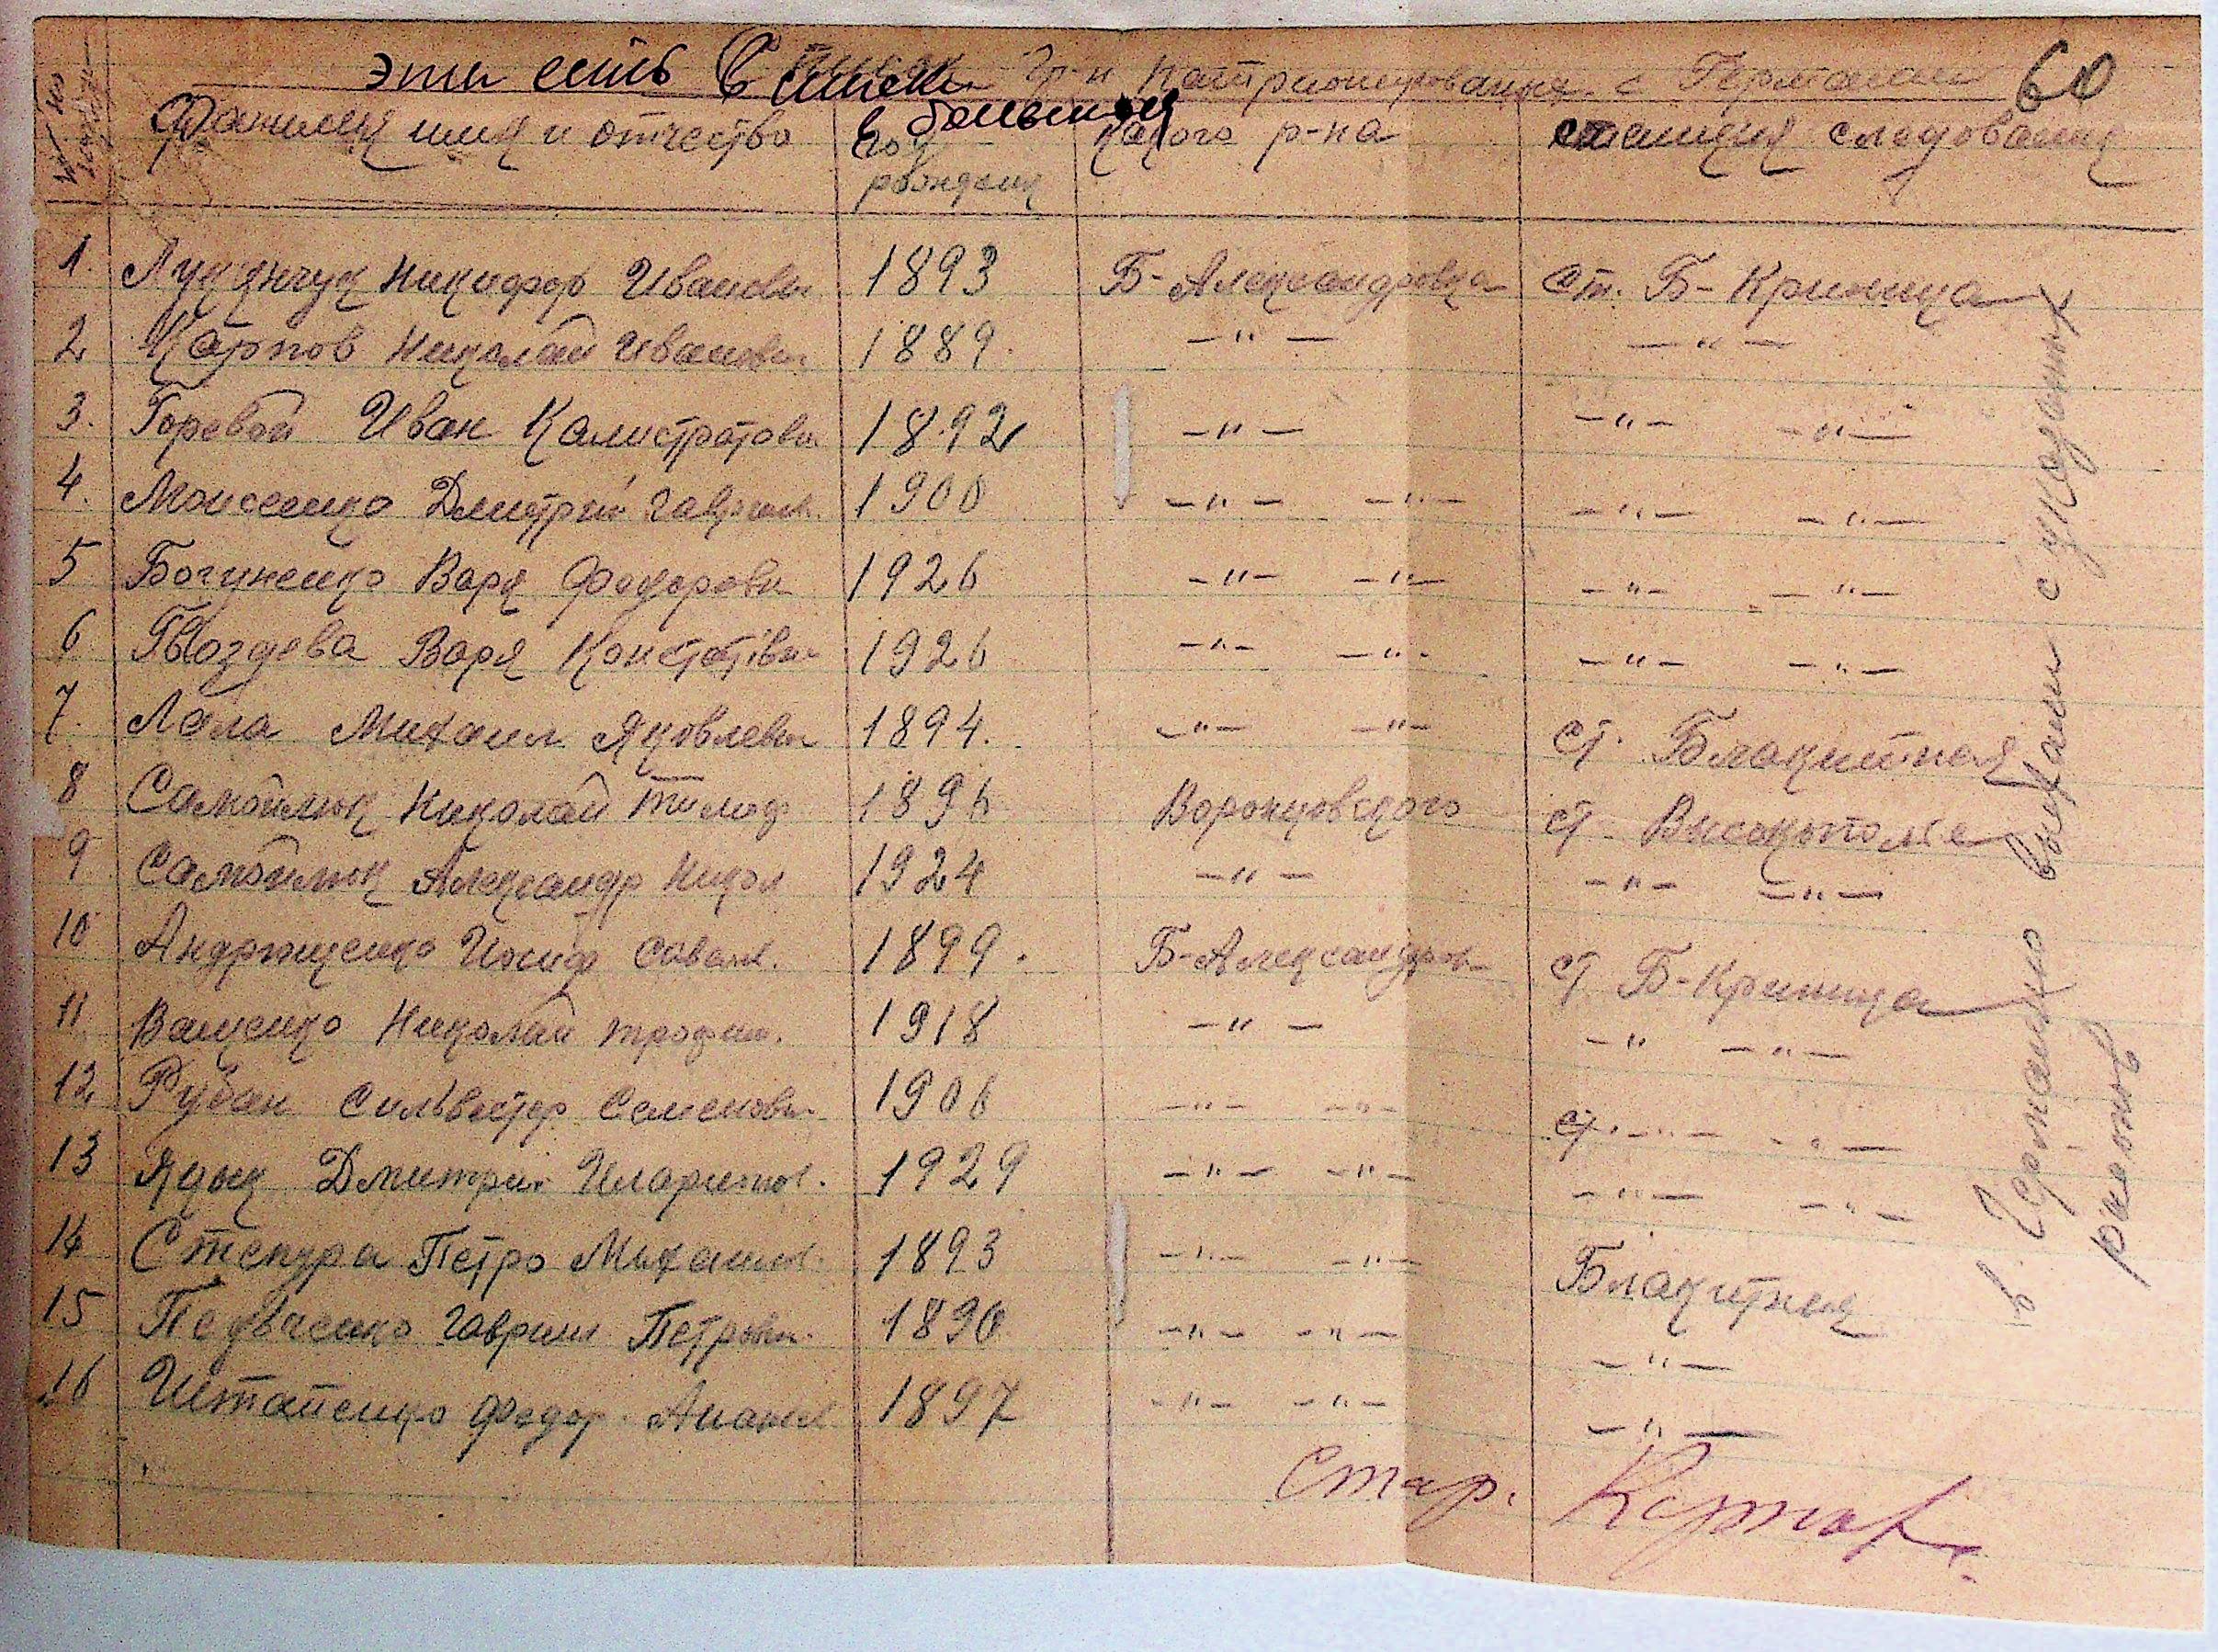 эти есть в списки большом
Список гр-н Патрионированых с Германии 60
Фамилия имя и отчество год рождения какого р-на станция следования
1. Лукянчук Никифор Иванови 1893 Б-Александровка Ст. Б-Криница
2 Карпов Николай Иванови 1889. —"— —"—
3. Горевой Иван Калистратови 1892 —"— —"— —"—
4. Моисеенко Дмитрий Гаврил. 1900 —"— —"— —"— —"—
5 Богуненко Варя Федорови 1926 —"— —"— —"— —"—
6 Гвоздева Варя 1926 —"— —"— —"— —"—
7. Лола Михаил Яковлеви 1894. —"— —"— ст. Блакитная
8 Самойлюк Николай Тимоф 1896 Воронцовского ст. Високополье
9 Самойлюк Александр Никол 1924 —"— —"— —"—
10 Андрющенко Иосиф Савел. 1899. Б-Александров ст Б-Криница
11 Ващенко Николай Трофим. 1918 —"— —"— —"—
12 Рубан Сильвестер Семенови 1906 —"— —"— ст. —"— —"—
13 Яцык Дмитрий Иларионов. 1929 —"— —"— —"— —"—
14 Стенура Петро Михаил. 1893 —"— —"— Блакитная
15 Гаврил Петрови. 1890 —"— —"— —"—
16 Федор Анан 1897 —"— —"— —"—
Стар. Карпов
в Германию выехали с указаных
районов